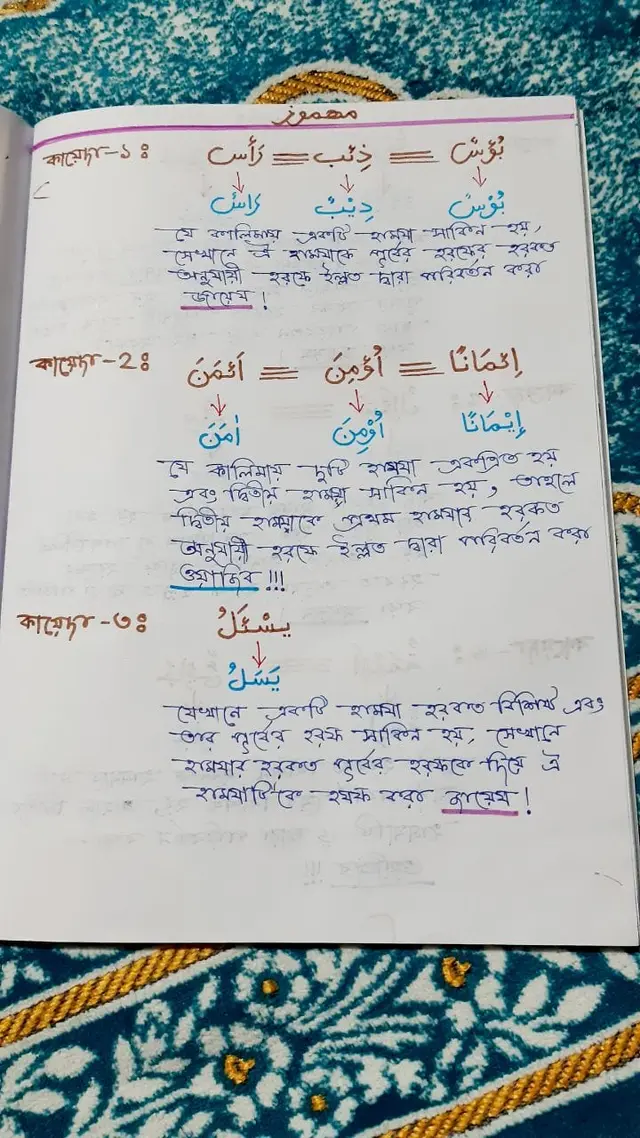 مهموز
কায়েদা-১ঃ رَأْسٌ = ذِئْبٌ = بُؤْسٌ
رَاسٌ ذِيْبٌ بُوْسٌ
যে কালিমায় একটি হামযা সাকিন হয়,
সেখানে ঐ হামযাকে পূর্বের হরফের হরকত
অনুযায়ী হরফে ইল্লত দ্বারা পরিবর্তন করা
জায়েয !
কায়েদা-2ঃ اَئْمَنَ = اُؤْمِنَ = اِئْمَانًا
اٰمَنَ اُوْمِنَ اِيْمَانًا
যে কালিমায় দুটি হামযা একত্রিত হয়
এবং দ্বিতীয় হামযা সাকিন হয়, তাহলে
দ্বিতীয় হামযাকে প্রথম হামযার হরকত
অনুযায়ী হরফে ইল্লত দ্বারা পরিবর্তন করা
ওয়াজিব !!!
কায়েদা-৩ঃ يَسْئَلُ
يَسَلُ
যেখানে একটি হামযা হরকত বিশিষ্ট এবং
তার পূর্বের হরফ সাকিন হয়, সেখানে
হামযার হরকত পূর্বের হরফকে দিয়ে ঐ
হামযাটিকে হযফ করা জায়েয !